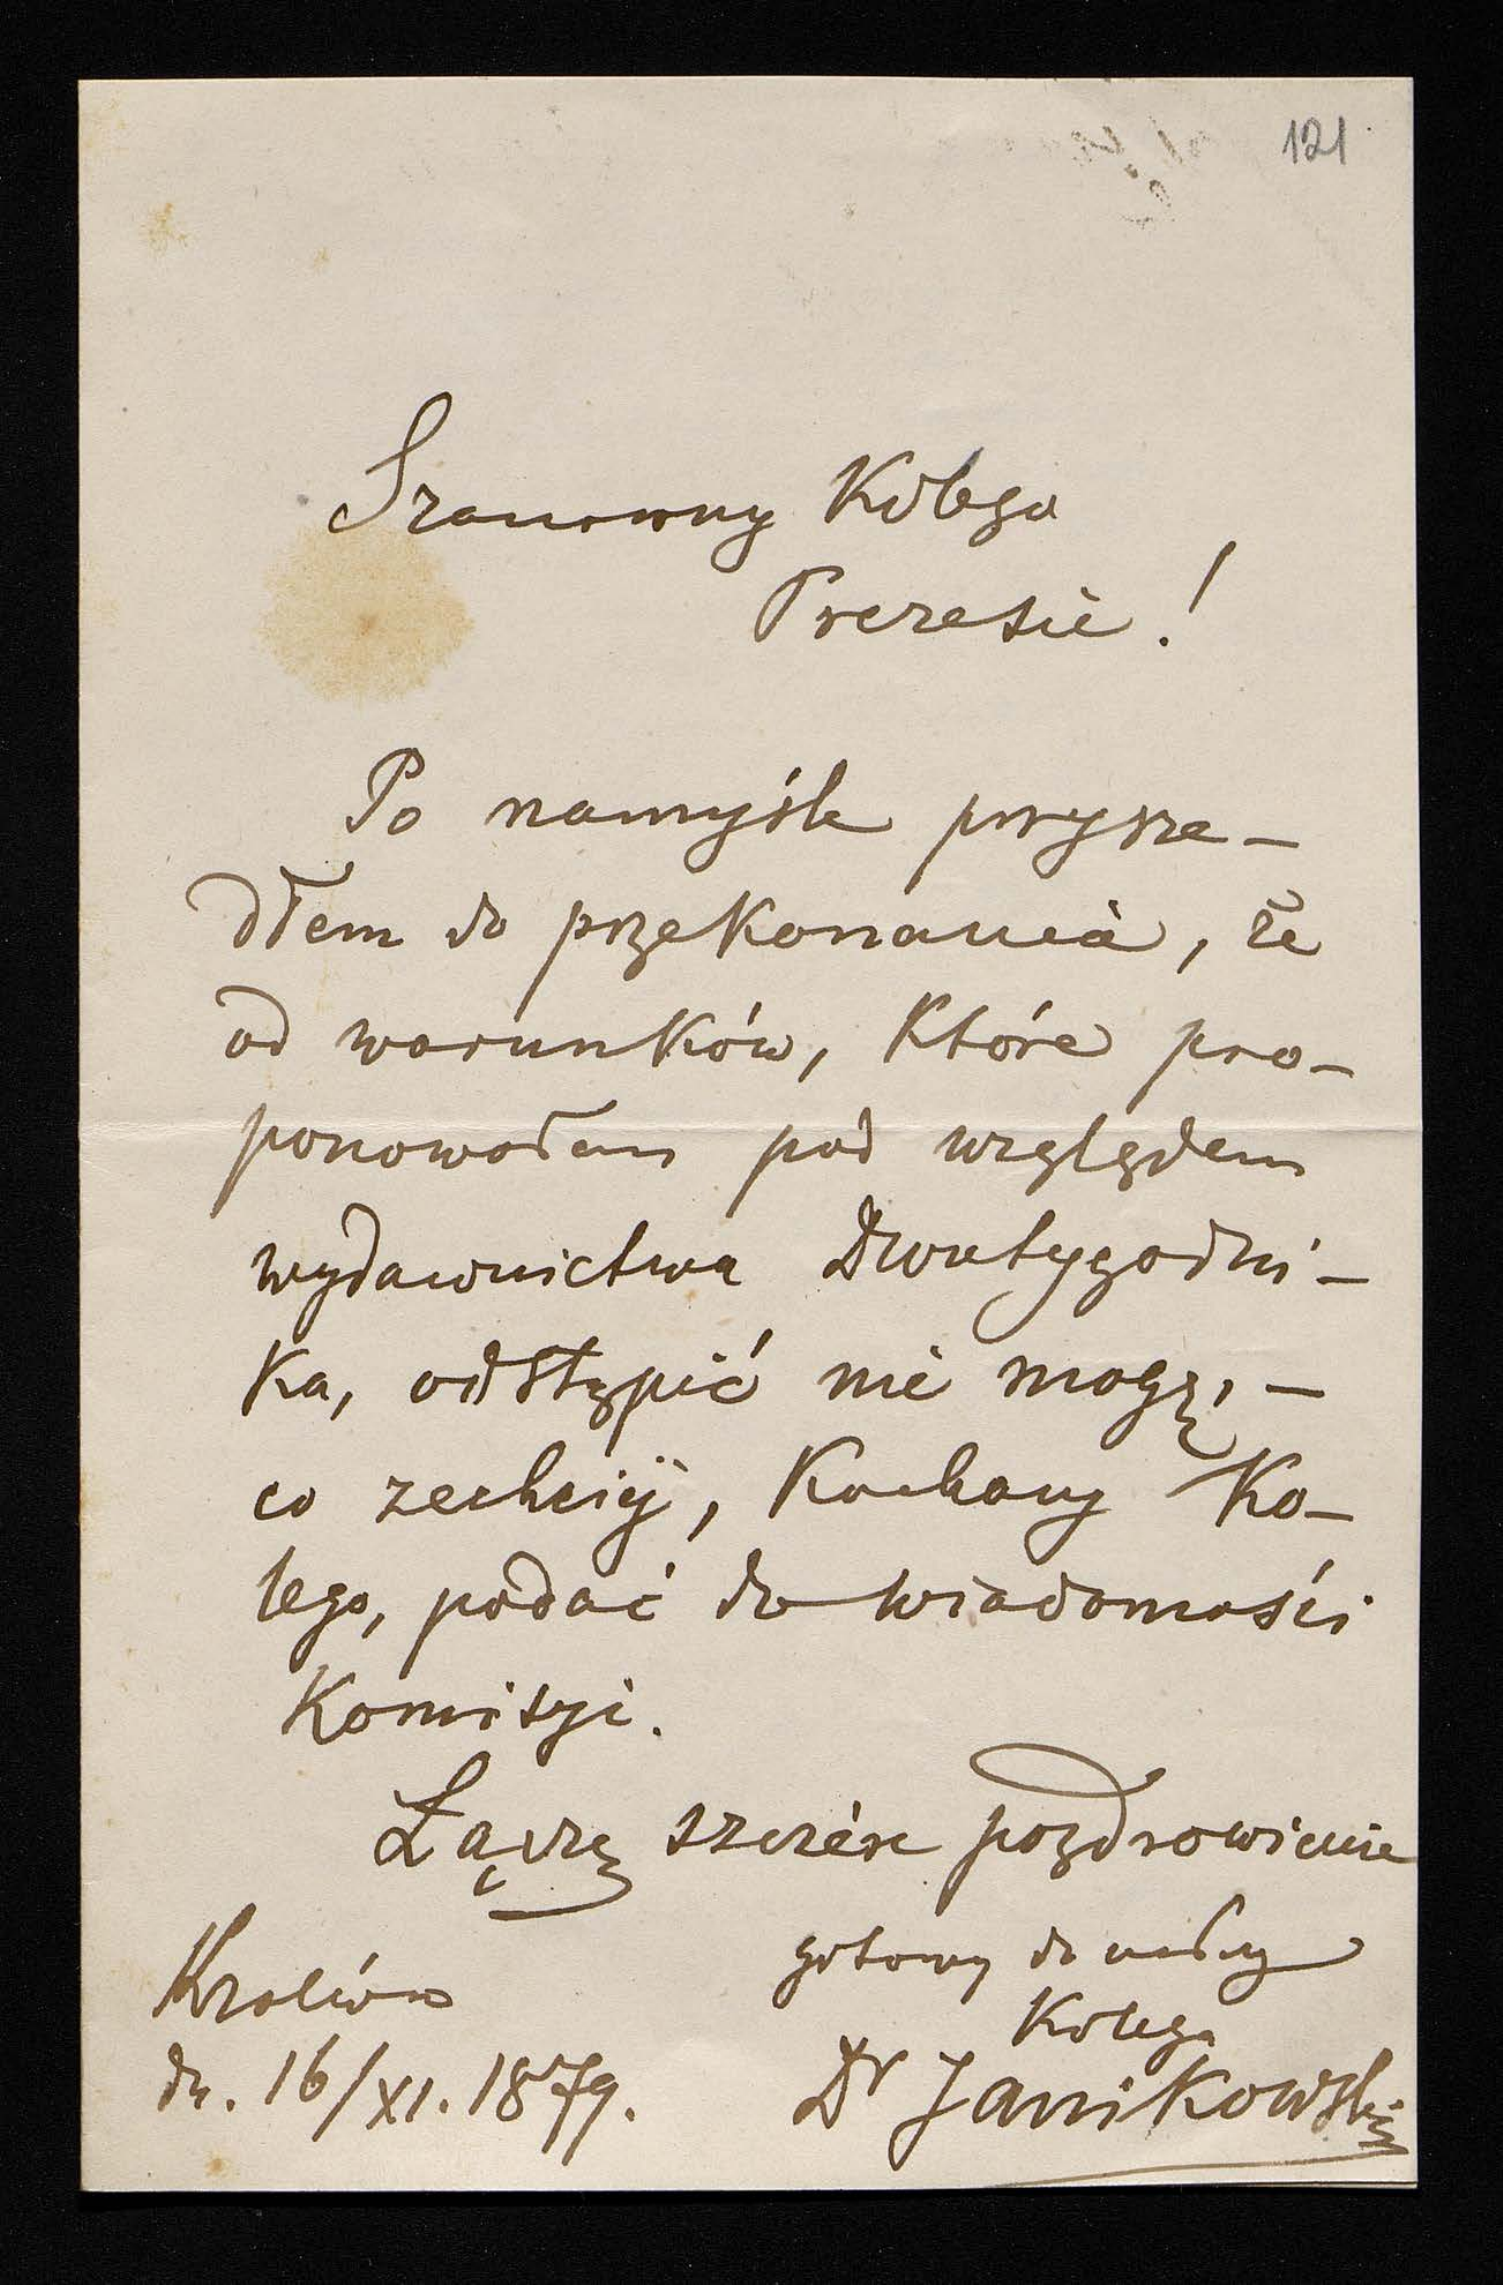 121
Szanowny Kolego
Prezesie!
Po namyśle przysze-
dłem do przekonania, że
od warunków, które pro-
ponowałem pod względem
wydawnictwa Dwutygodni-
ka, odstąpić nie mogę, -
co zechciej, Kochany Ko-
lego, podać do wiadomości
Komisyi.
Łączę szczére pozdrowienie
gotowy do usług
Kolega
Dr Janikowski
Kraków
dn. 16/XI. 1879.